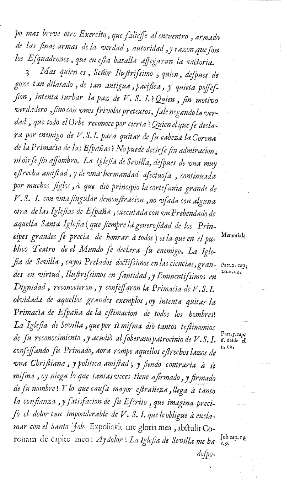 por mas breve otro Exercito, que saliesse al encuentro, armado
de las finas armas de la verdad, autoridad, y razon, que son
los Esquadrones, que en esta batalla asseguran la victoria.
3 Mas quien es, Señor Ilustrissimo, quien, despues de
goze tan dilatado, de tan antigua, pacifica, y quieta posses-
sion, intenta turbar la paz de V. S. I.? Quien, sin motivo
verdadero, sino con unos frivolos pretextos, la verdad,
que todo el Orbe reconoce por cierta? Quien el que se decla-
ra por enemigo de V. S. I. para quitar de su cabeza la Corona
de la Primacia de las Españas? No puede decirse sin admiracion,
ni oirse sin assombro. La Iglesia de Sevilla, despues de una muy
estrecha amistad, y de una hermandad afectuosa, continuada
por muchos siglos, à que diò principio la cortesania grande de
V. S. I. con una singular demonstracion, no usada con alguna
otra de las Iglesias de España, executada con un Prebendado de
aquella Santa Iglesia (que siempre la generosidad de los Prin-
cipes grandes se precia de honrar à todos) es la que en el pu-
blico Teatro de el Mundo se declara su enemigo. La Igle-
sia de Sevilla, cuyos Prelados doctissimos en las ciencias, gran-
des en virtud, Ilustrissimos en santidad, y Eminentissimos en
Dignidad, reconocieron, y confessaron la Primacia de V. S. I.
olvidada de aquellos grandes exemplos, oy intenta quitar la
Primacia de España de la estimacion de todos los hombres!
La Iglesia de Sevilla, que por sì misma diò tantos testimonios
de su reconocimiento, y acudiò al soberano patrocinio de V. S. I.
confessando se Primado, aora rompe aquellos estrechos lazos de
una Christiana, y politica amistad, y siendo contraria à sì
misma, oy niega lo que tantas veces tiene afirmado, y firmado
de su nombre! Y lo que causa mayor estrañeza, llega à tanto
la confianza, y satisfacion de su Escrito, que imagina preci-
so el dolor tan imponderable de V. S. I. que le obligue à excla-
mar con el Santo Job. Expoliavit me gloria mea, abstulit Co-
ronam de capite meo: Ay dolor! La Iglesia de Sevilla me ha
despo-